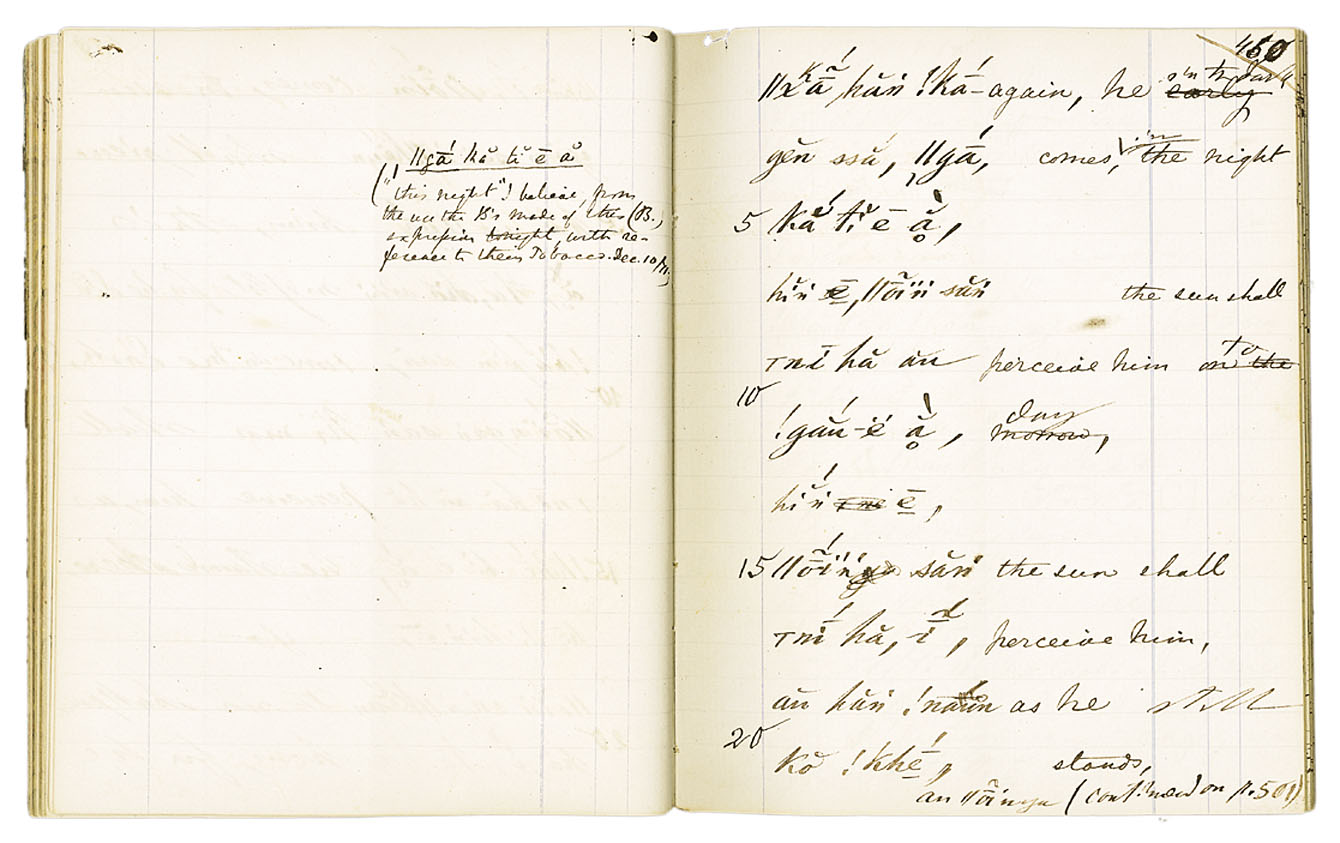 //gā́ kắ tĭ ē ā̆
("this night" I believe, from
the use the B's made of this (B.)
expression tonight, with re-
ference to their Tobacco. Dec. 10/71)
450
hăṅ !kā́- again, he early
in the dark
gĕn ssā́, //gā́, comes, in the night
5 kắ tĭ ē ā̆,
hĭṅ ē, săṅ the sun shall
ṯnĭ hă aŭ perceive him on the
to
10
!gaŭ-ĕ ā̆, morrow,
day
hĭṅ ē,
15 săṅ the sun shall
ṯnĭ hă, ĭ, perceive him,
aŭ hăṅ as he still
20
kŏ !khé, stands,
au //ōĭnya (continued on p. 501)